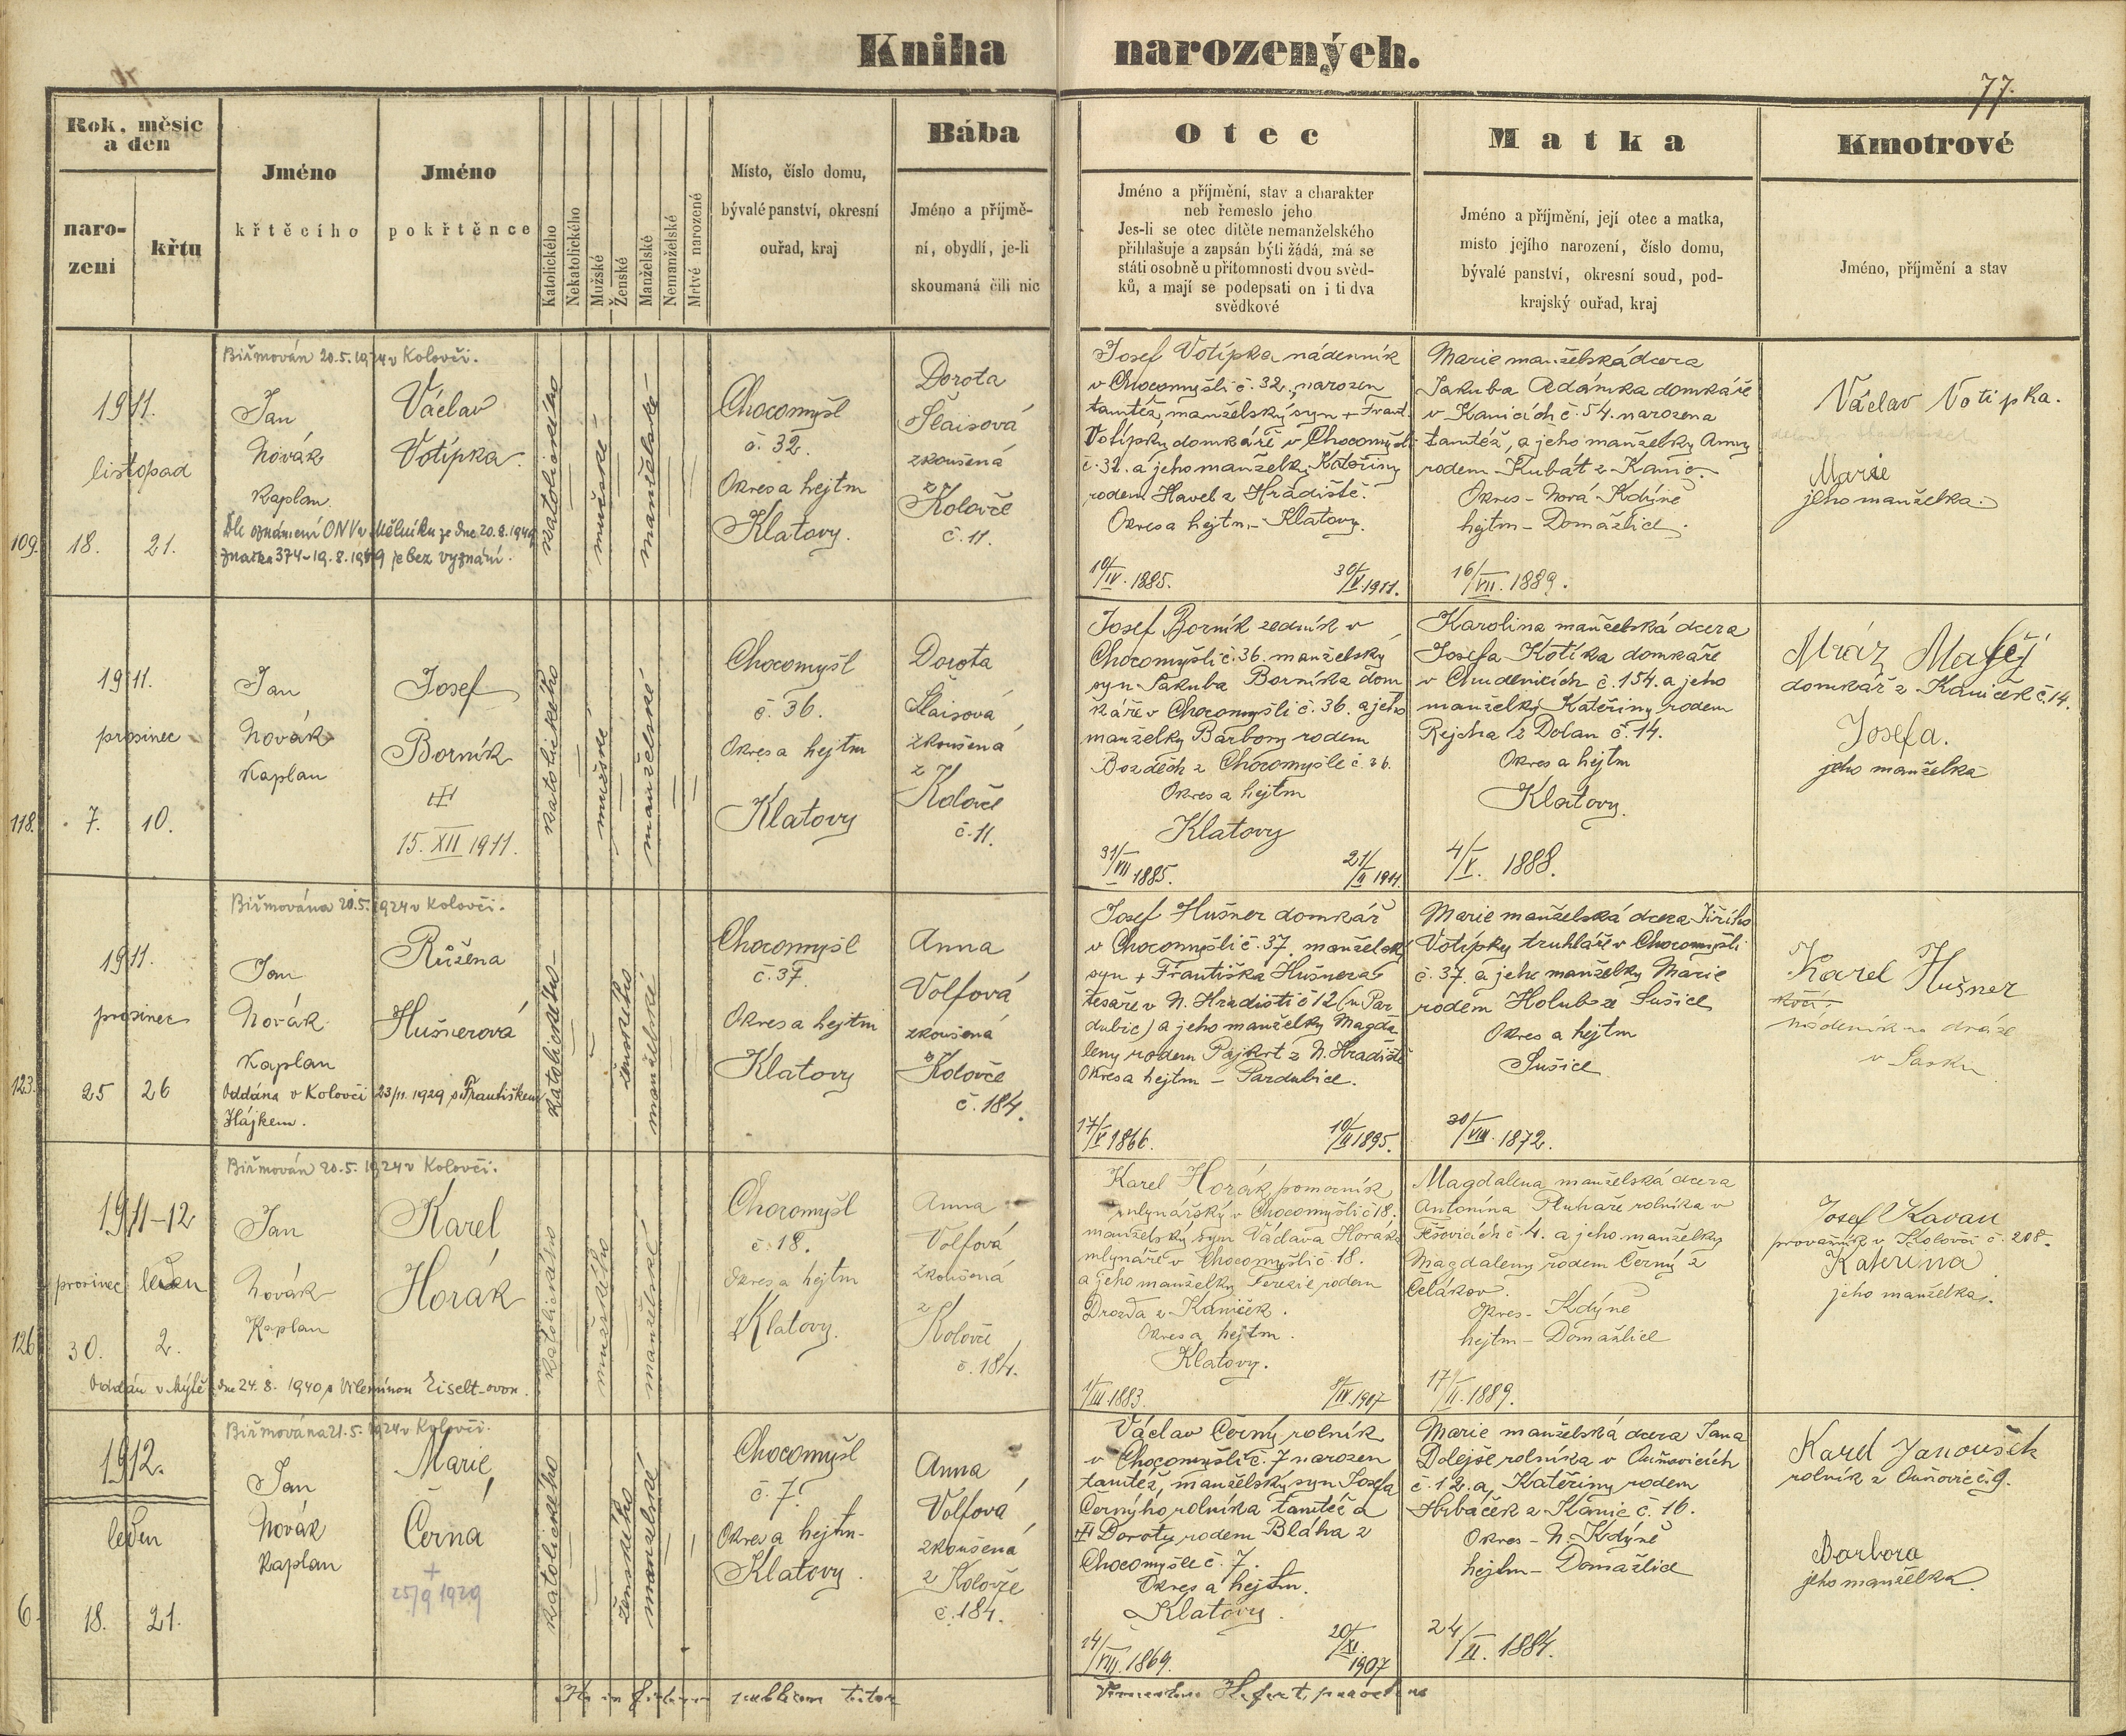 Kniha narozených.
77.
Rok, měsíc a den
narození
křtu
Jméno
křtěcího
Jméno
pokřtěnce
Katolického
Nekatolického
Mužské
Ženské
Manželské
Nemanželské
Mrtvé narozené
Místo, číslo domu,
bývalé panství, okresní
ouřad, kraj
Bába
Jméno a příjmě-
ní, obydlí, je-li
skoumaná čili nic
Otec
Jméno a příjmění, stav a charakter
neb řemeslo jeho
Jes-li se otec dítěte nemanželského
přihlašuje a zapsán býti žádá, má se
státi osobně u přítomnosti dvou svěd-
ků, a mají se podepsati on i ti dva
svědkové
Matka
Jméno a příjmění, její otec a matka,
místo jejího narození, číslo domu,
bývalé panství, okresní soud, pod-
krajský ouřad, kraj
Kmotrové
Jméno, příjmění a stav
109.
1911.
listopad
18. 21.
Biřmován 20.5.1924 v Kolovči.
Jan
Novák
Kaplan
Dle oznámení ONV v Mělníku ze dne 20.8.1949
značka 374-19.8.1949 je bez vyznání.
Václav
Votípka
katolického
mužské
manželské
Chocomyšl
č. 32.
Okres a hejtm
Klatovy.
Dorota
Šlaisová
zkoušená
z
Koloče
č. 11.
Josef Votípka nádenník
v Chocomyšli č. 32, narozen
tamtéž, manželský syn + Frant.
Votípky domkáře v Chocomyšli
č. 32. a jeho manželky Kateřiny
rodem Havel z Hradiště.
Okres a hejtm. - Klatovy.
10/IV. 1885.
30/V. 1911.
Marie manželská dcera
Jakuba Adámka domkáře
v Kanicích č. 54. narozena
tamtéž, a jeho manželky Anny
rodem Kubát z Kanic.
Okres - Nová Kdýně
hejtm - Domažlice.
16/VII. 1889.
Václav Votipka.
Marie
jeho manželka.
118.
1911.
prosinec
7. 10.
Jan
Novák
Kaplan
Josef
Borník
15. XII 1911.
katolického
mužské
manželské
Chocomyšl
č. 36.
Okres a hejtm
Klatovy
Dorota
Šlaisová
zkoušená
z
Koloče
č. 11.
Josef Borník zedník v
Chocomyšli č. 36. manželský
syn Jakuba Borníka dom
káře v Chocomyšli č. 36. a jeho
manželky Barbory rodem
Bozděch z Chocomyšle č. 36.
Okres a hejtm
Klatovy
31/VII 1885.
21/II 1911.
Karolina manželská dcera
Josefa Kotíka domkáře
v Chudenicích č. 154. a jeho
manželky Kateřiny rodem
Rejcha z Dolan č. 14.
Okres a hejtm
Klatovy.
4/V. 1888.
Mráz Matěj
domkář z Kaniček č. 14.
Josefa.
jeho manželka
123.
1911.
prosinec
25 26
Biřmována 20.5.1924 v Kolovči.
Jan
Novák
Kaplan
Oddána v Kolovči 23/11. 1929 s Františkem
Hájkem.
Růžena
Hušnerová
katolického
ženského
manželské
Chocomyšl
č. 37.
Okres a hejtm
Klatovy
Anna
Volfová
zkoušená
z Koloče
č. 184.
Josef Hušner domkář
v Chocomyšli č. 37. manželský
syn + Františka Hušnera
tesaře v N. Hradišti č 12 (u Par
dubic) a jeho manželky Magda
leny rodem Pajkrt z N. Hradiště
Okres a hejtm - Pardubice.
17/V 1866.
10/II 1895.
Marie manželská dcera Jiřího
Votípky truhláře v Chocomyšli
č. 37. a jeho manželky Marie
rodem Holub ze Sušice
Okres a hejtm
Sušice
30/VIII. 1872.
Karel Hušner
nádenník na dráze
v Sasku
126.
1911-12
prosinec leden
30. 2.
Oddán v Mýtě dne 24. 8. 1940 s Vilemínou Eiselt-ovou.
Biřmován 20.5.1924 v Kolovči.
Jan
Novák
Kaplan
Karel
Horák
katolického
mužského
manželské
Chocomyšl
č. 18.
Okres a hejtm
Klatovy.
Anna
Volfová
zkoušená
z
Koloče
č. 184.
Karel Horák pomocník
mlynářský v Chocomyšli č 18.
manželský syn Václava Horáka
mlynáře v Chocomyšli č. 18.
a jeho manželky Terezie rodem
Drozda z Kaniček.
Okres a hejtm.
Klatovy.
1/III. 1883.
8/IV. 1907
Magdalena manželská dcera
Antonína Pluhaře rolníka v
Těšovicích č. 4. a jeho manželky
Magdaleny rodem Černý z
Čelákov.
Okres - Kdýně
hejtm - Domažlice
17/II. 1889.
Josef Kavan
provazník v Kolovči č. 208.
Kateřina
jeho manželka.
6.
1912.
leden
18. 21.
Biřmována 21.5.1924 v Kolovči.
Jan
Novák
Kaplan
Marie
Černá
+
25/9 1929
katolického
ženského
manželské
Chocomyšl
č. 7.
Okres a hejtm-
Klatovy.
Anna
Volfová
zkoušená
z Koloče
č. 184.
Václav Černý rolník
v Chocomyšli č. 7 narozen
tamtéž, manželský syn Josefa
Černýho rolníka tamtéž a
Doroty rodem Bláha z
Chocomyšle č. 7.
Okres a hejtm.
Klatovy.
14/VIII. 1869.
20/XI. 1907
Marie manželská dcera Jana
Dolejše rolníka v Ouňovicích
č. 12. a Kateřiny rodem
Hrbáček z Kanic č. 16.
Okres - N. Kdýně
hejtm - Domažlice
24/II. 1884.
Karel Janoušek
rolník z Ouňovic č. 9.
Barbora
jeho manželka.